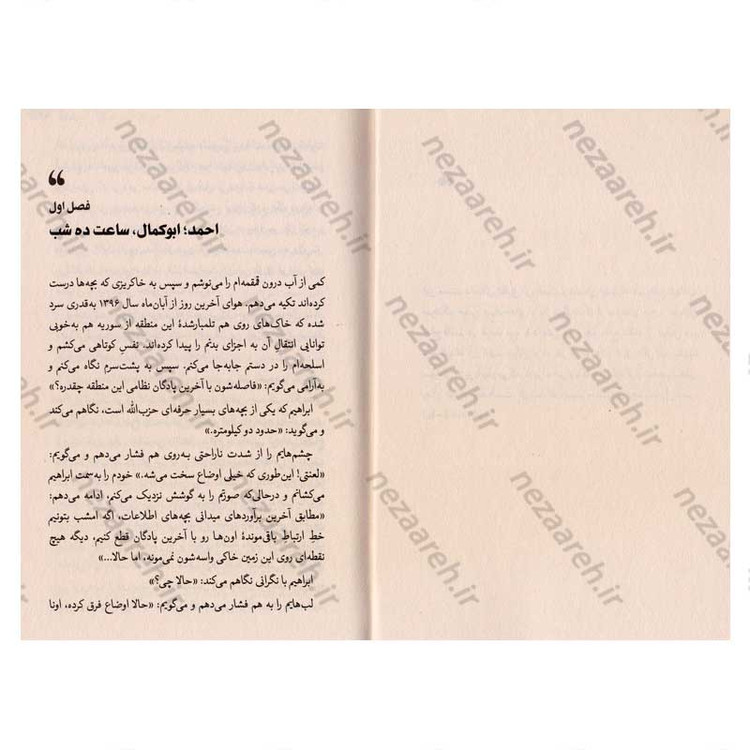 فصل اول
احمد؛ ابوکمال، ساعت ده شب
کمی از آب درون قمقمه‌ام را می‌نوشم و سپس به خاکریزی که بچه‌ها درست
کرده‌اند تکیه می‌دهم. هوای آخرین روز از آبان‌ماه سال ۱۳۹۶ به‌قدری سرد
شده که خاک‌های روی هم تلمبارشدهٔ این منطقه از سوریه هم به‌خوبی
توانایی انتقالِ آن به اجزای بدنم را پیدا کرده‌اند. نفسِ کوتاهی می‌کشم و
اسلحه‌ام را در دستم جابه‌جا می‌کنم. سپس به پشت‌سرم نگاه می‌کنم و
به‌آرامی می‌گویم: «فاصله‌شون با آخرین پادگان نظامی این منطقه چقدره؟»
ابراهیم که یکی از بچه‌های بسیار حرفه‌ای حزب‌الله است، نگاهم می‌کند
و می‌گوید: «حدود دو کیلومتره.»
چشم‌هایم را از شدت ناراحتی به‌روی هم فشار می‌دهم و می‌گویم:
«لعنتی! این‌طوری که خیلی اوضاع سخت می‌شه.» خودم را به‌سمت ابراهیم
می‌کشانم و درحالی‌که صورتم را به گوشش نزدیک می‌کنم، ادامه می‌دهم:
«مطابق آخرین برآوردهای میدانی بچه‌های اطلاعات، اگه امشب بتونیم
خطِ ارتباطِ باقی‌موندهٔ اون‌ها رو با آخرین پادگان قطع کنیم، دیگه هیچ
نقطه‌ای روی این زمین خاکی واسه‌شون نمی‌مونه، اما حالا...»
ابراهیم با نگرانی نگاهم می‌کند: «حالا چی؟»
لب‌هایم را به هم فشار می‌دهم و می‌گویم: «حالا اوضاع فرق کرده، اونا
nezaareh.ir